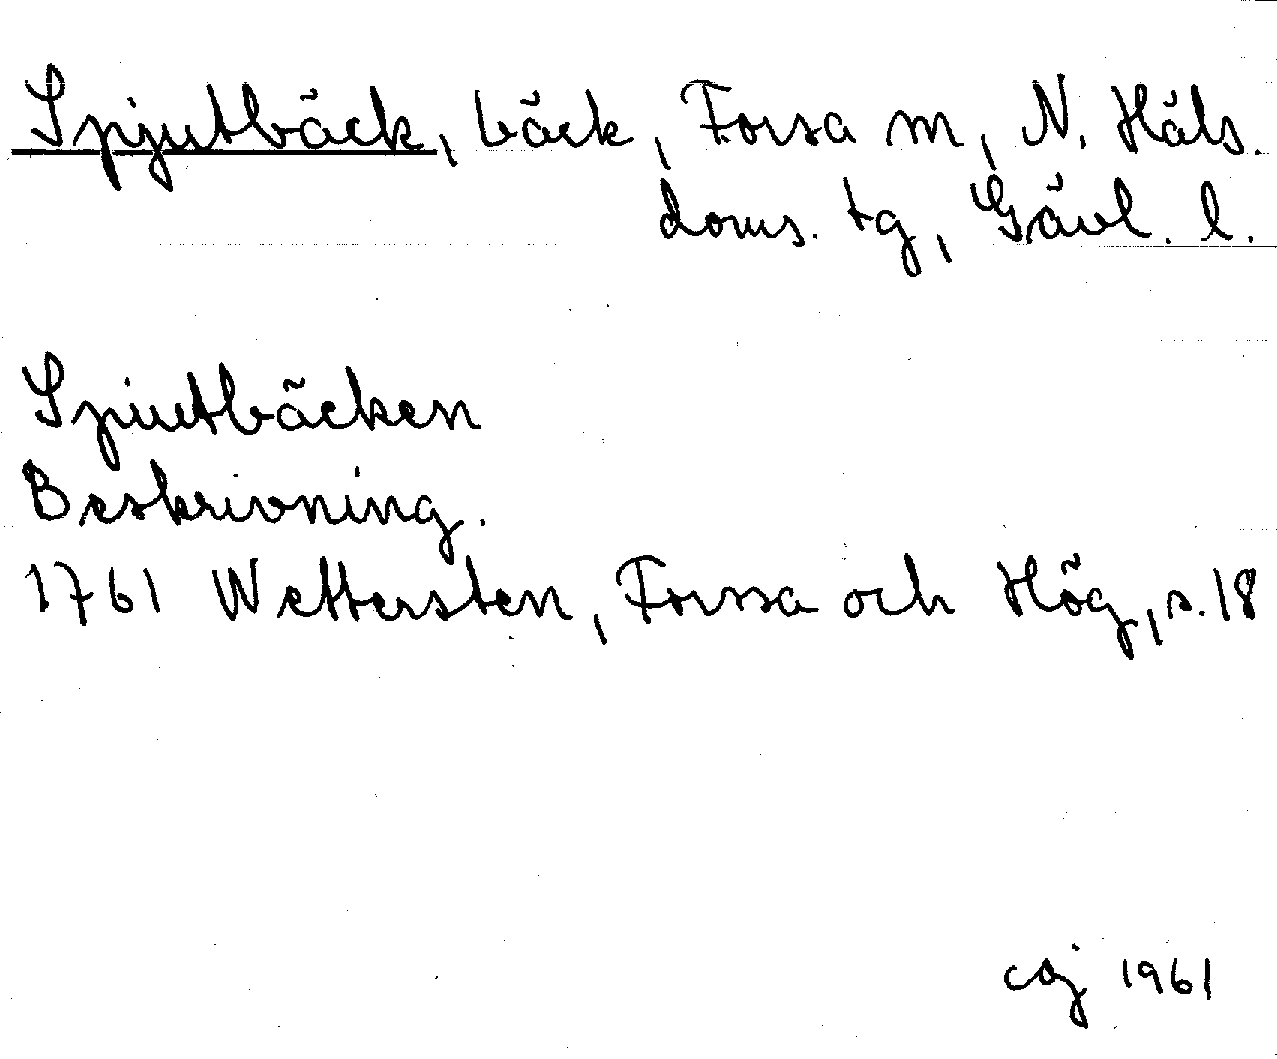 Spjutbäck, bäck, Forsa m, N. Häls.
doms. tg, Gävl. l.
Spiutbäcken
Beskrivning.
1761 Wettersten, Forssa och Hög, s. 18
caj 1961